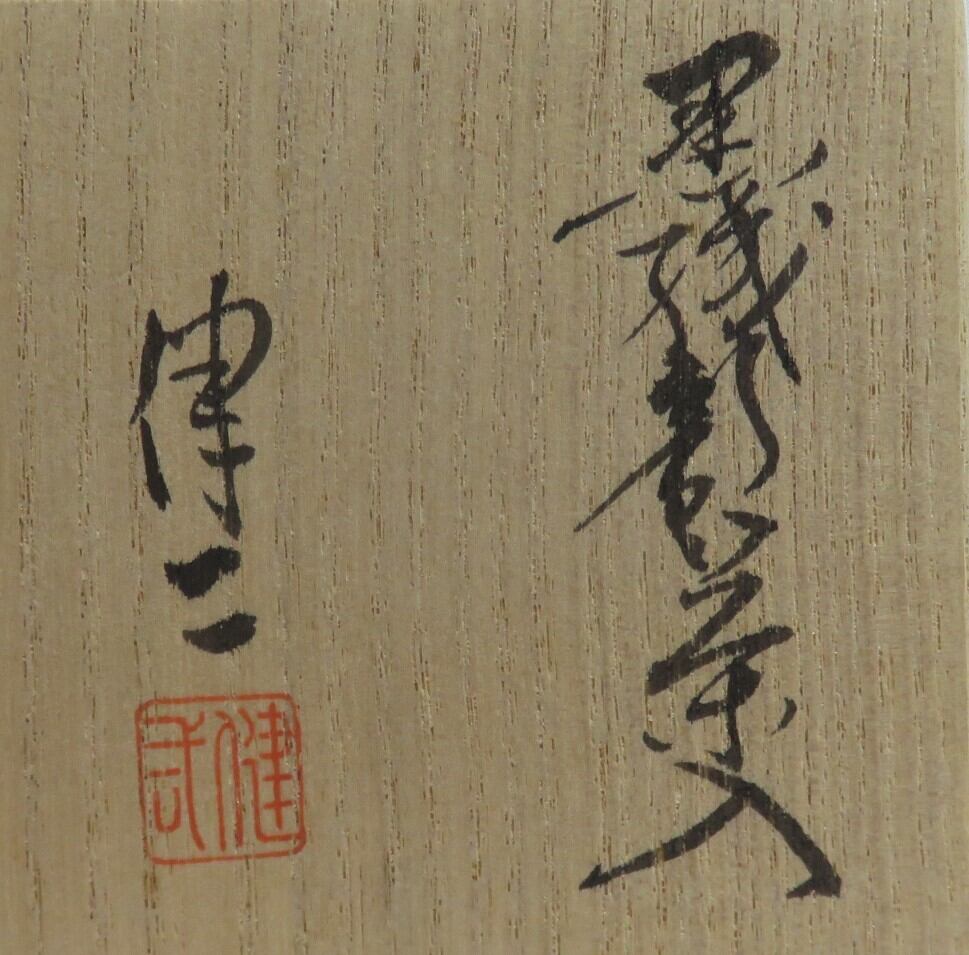 黒織部茶入
健二
健